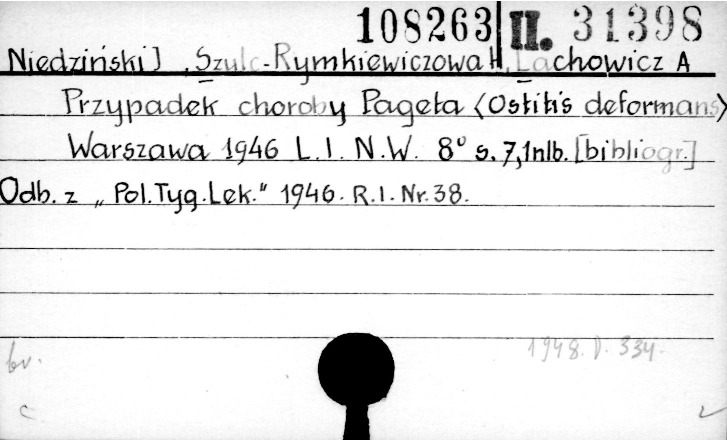 108263 II. 31398
Niedziński J, Szulc-Rymkiewiczowa H, Lachowicz A
Przypadek choroby Pageta <Ostitis deformans>
Warszawa 1946 L.I.N.W. 8° s. 7,1nlb. [bibliogr.]
Odb. z „Pol.Tyg.Lek." 1946. R.I. Nr. 38.
1948. D. 334.
br.
c